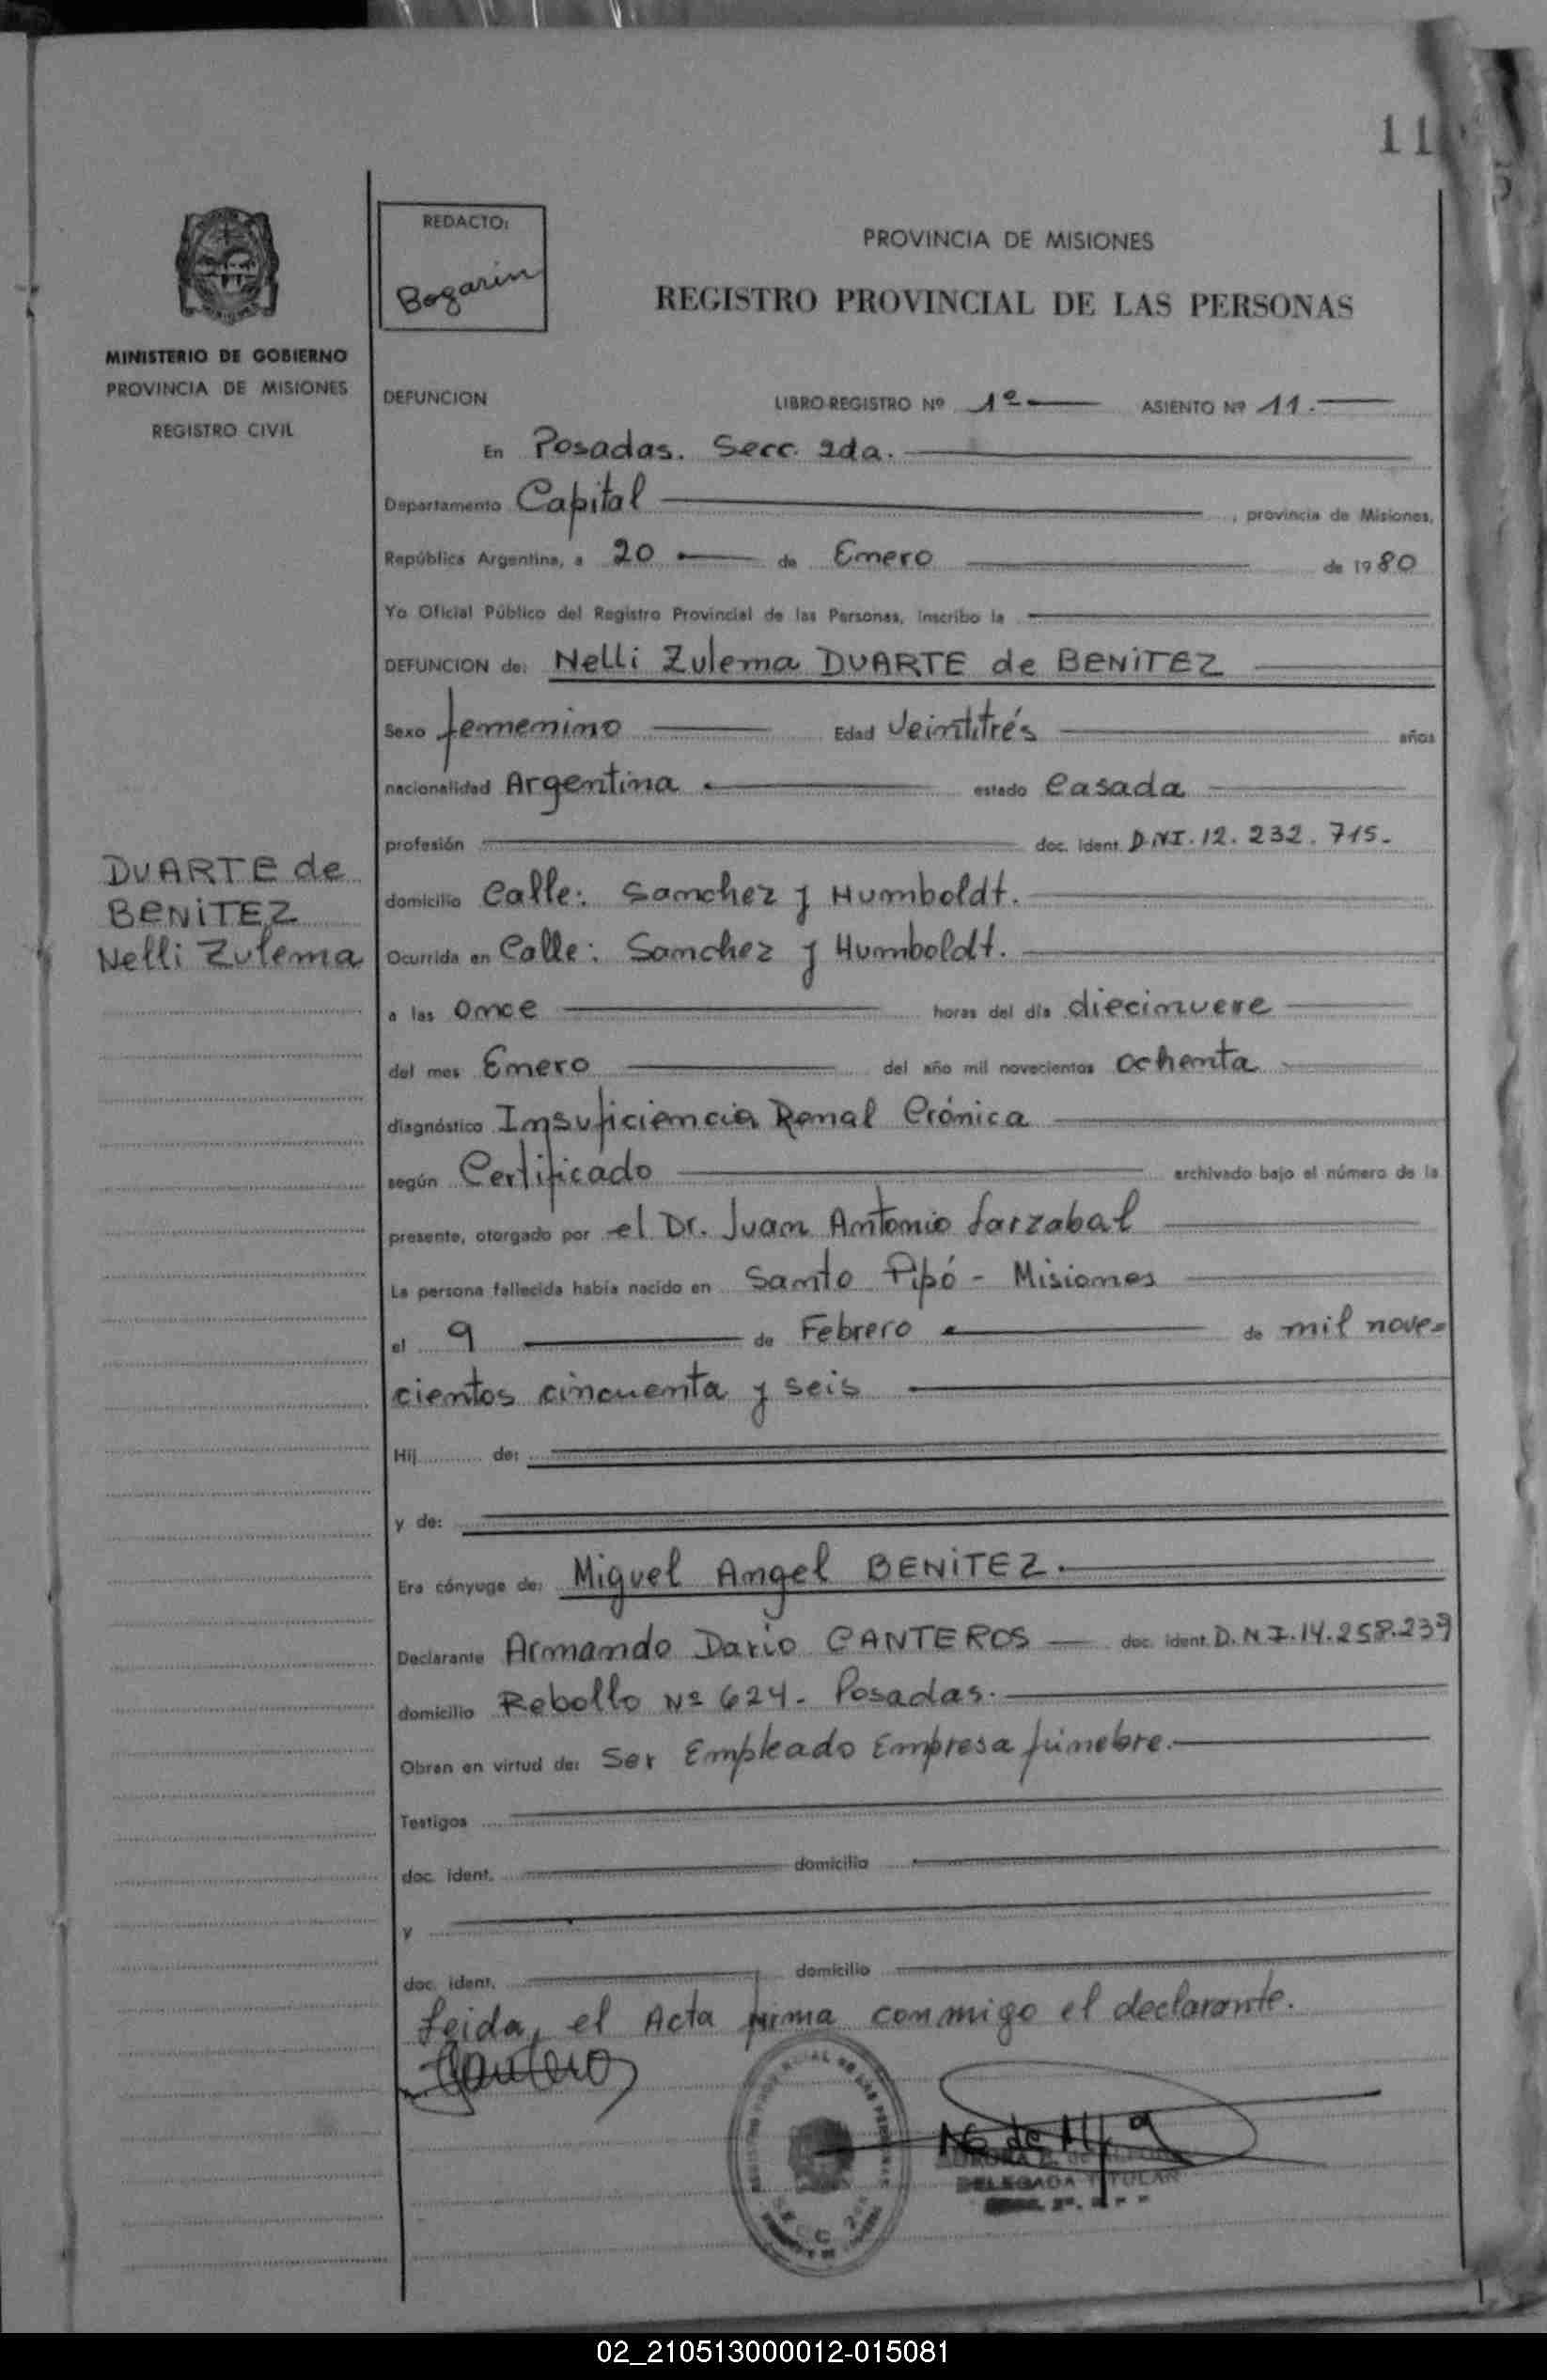 11
REDACTO:
Bogarin
PROVINCIA DE MISIONES
REGISTRO PROVINCIAL DE LAS PERSONAS
MINISTERIO DE GOBIERNO
PROVINCIA DE MISIONES
REGISTRO CIVIL
DEFUNCION LIBRO-REGISTRO Nº 1º ASIENTO Nº 11.
En Posadas. Secc. 2da.
Departamento Capital , provincia de Misiones,
República Argentina, a 20 de Enero de 1980
Yo Oficial Público del Registro Provincial de las Personas, inscribo la
DEFUNCION de: Nelli Zulema DUARTE de BENITEZ
Sexo femenino Edad Veintitrés años
nacionalidad Argentina estado Casada
profesión doc. ident. D.N.I. 12. 232. 715.
DUARTE de
BENITEZ
Nelli Zulema
domicilio Calle: Sanchez y Humboldt.
Ocurrida en Calle: Sanchez y Humboldt.
a las once horas del día diecinueve
del mes Enero del año mil novecientos ochenta
diagnóstico Insuficiencia Renal Crónica
según Certificado archivado bajo el número de la
presente, otorgado por el Dr. Juan Antonio Larzabal
La persona fallecida había nacido en Santo Pipó - Misiones
el 9 de Febrero de mil nove=
cientos cincuenta y seis
Hij de:
y de:
Era cónyuge de: Miguel Angel BENITEZ.
Declarante Armando Dario CANTEROS doc. ident. D.N.I. 14.258.239
domicilio Rebollo Nº 624. Posadas.
Obran en virtud de: Ser Empleado Empresa fúnebre.
Testigos
doc. ident. domicilio
y
doc. ident. domicilio
Leida, el Acta firma conmigo el declarante.
DELEGADA TITULAR
02_210513000012-015081